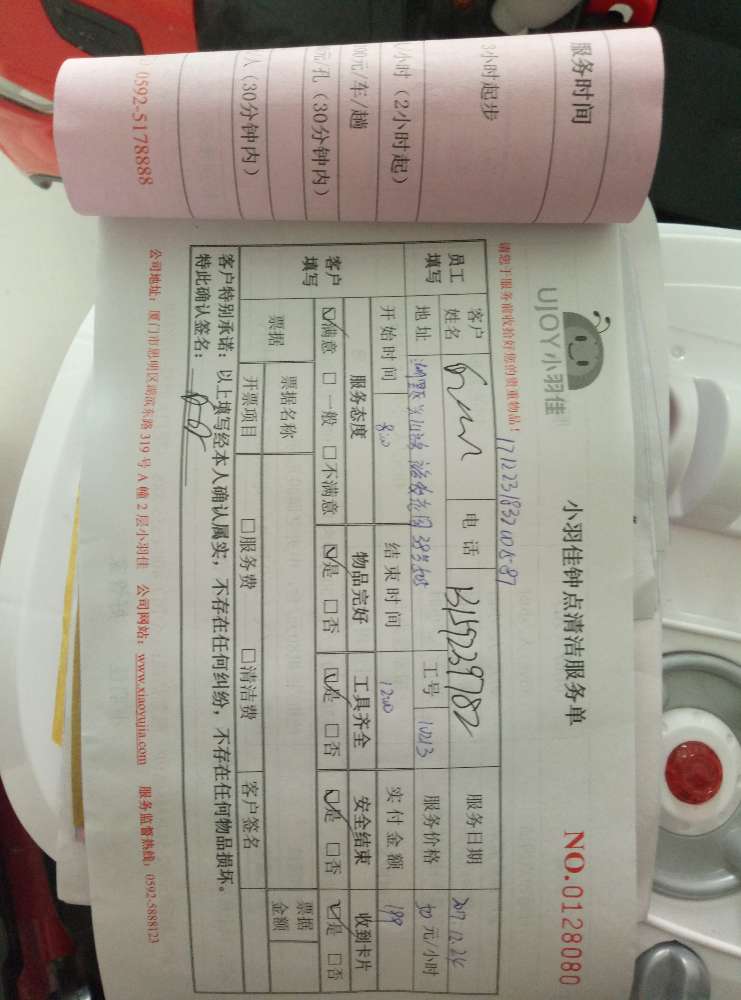 服务时间
3小时起步
小时（2小时起）
00元/车/趟
元/孔（30分钟内）
人（30分钟内）
0592-5178888
UJOY小羽佳
小羽佳钟点清洁服务单
NO.0128080
请您于服务前收拾好您的贵重物品！
员工填写 客户姓名 电话 13159239782 服务日期 2017.12.24
地址 工号 10213 服务价格 50元/小时
开始时间 8:00 结束时间 12:00 实付金额 199
客户填写 服务态度 物品完好 工具齐全 安全结束 收到卡片
☑满意 □一般 □不满意 ☑是 □否 ☑是 □否 ☑是 □否 ☑是 □否
票据 票据名称 票据金额
开票项目 □服务费 □清洁费 客户签名
客户特别承诺：以上填写经本人确认属实，不存在任何纠纷，不存在任何物品损坏。
特此确认签名：
公司地址：厦门市思明区湖滨东路319号A幢2层小羽佳 公司网站：www.xiaoyujia.com 服务监督热线：0592-5888123